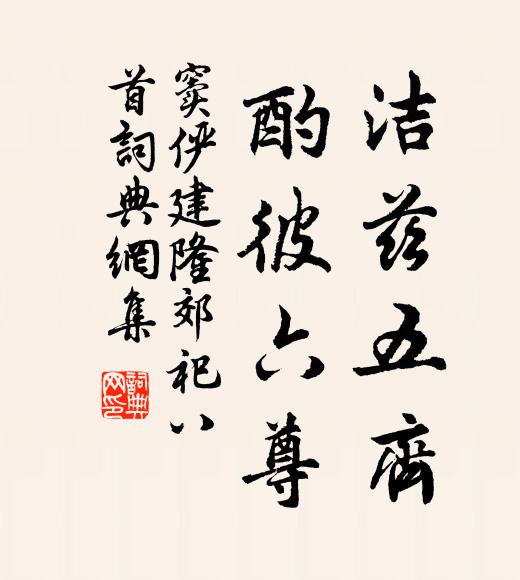 洁兹五齊
酌彼六尊
窦俨建隆郊祀八
首詞典網集
詞典網印